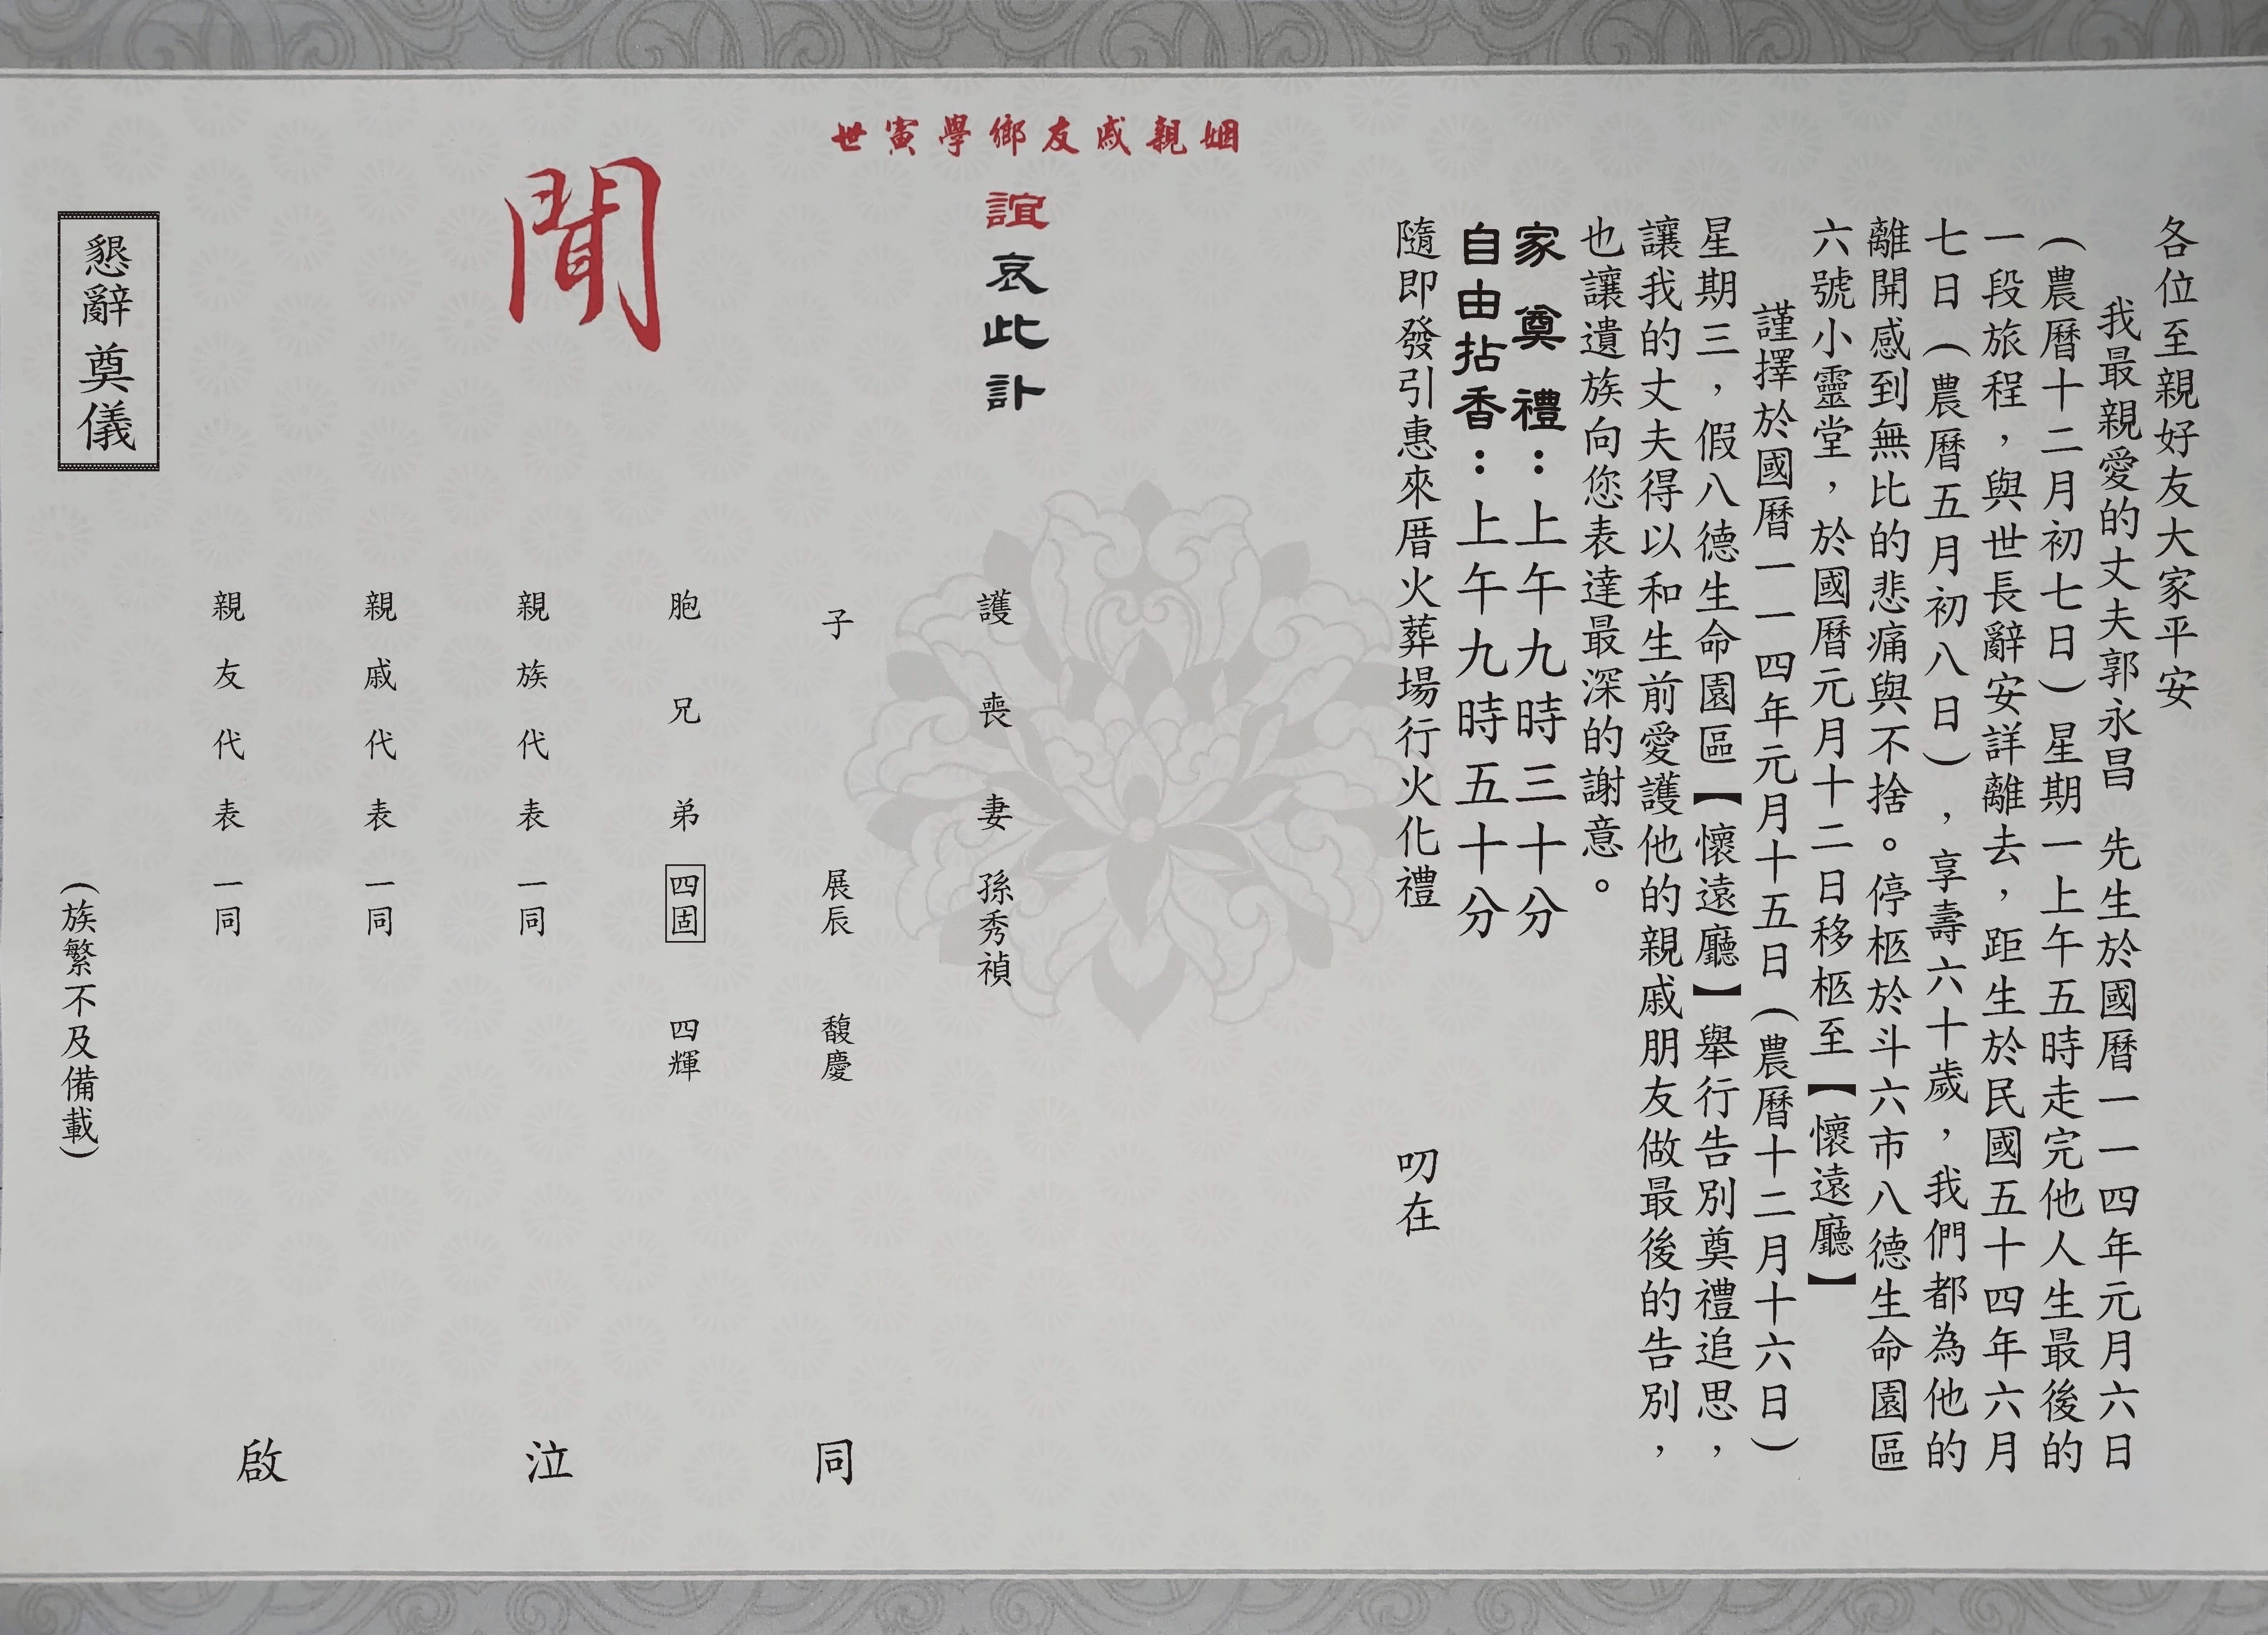 各位至親好友大家平安
我最親愛的丈夫郭永昌 先生於國曆一一四年元月六日
(農曆十二月初七日)星期一上午五時走完他人生最後的
一段旅程，與世長辭安詳離去，距生於民國五十四年六月
七日(農曆五月初八日)，享壽六十歲，我們都為他的
離開感到無比的悲痛與不捨。停柩於斗六市八德生命園區
六號小靈堂，於國曆元月十二日移柩至【懷遠廳】
謹擇於國曆一一四年元月十五日(農曆十二月十六日)
星期三，假八德生命園區【懷遠廳】舉行告別奠禮追思，
讓我的丈夫得以和生前愛護他的親戚朋友做最後的告別，
也讓遺族向您表達最深的謝意。
家奠禮：上午九時三十分
自由拈香：上午九時五十分
隨即發引惠來厝火葬場行火化禮
叨在
姻親戚友鄉學寅世
誼哀此訃
聞
護喪妻 孫秀禎
子 展辰 馥慶
胞兄弟 四固 四輝
親族代表 一同
親戚代表 一同
親友代表 一同
同泣啟
懇辭奠儀
(族繁不及備載)